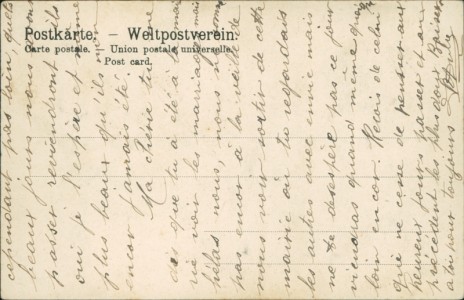 Postkarte. – Weltpostverein.
Carte postale. – Union postale universelle.
Post card.
cependant pas loin, que
beaux jours nous
passer reviendront ils
oui je l'espère et même
plus beaux qu'ils
encor jamais été.
Ma chérie tu
dis que tu a été à
rie voir les mariages
hélas nous, nous ne sommes
pas encor à la veille de
nous voir sortir de cette
mairie ou tu regardais
les autres avec envie mais
ne te désespère pas ce jour
viendras quand même quoi
loin encor. Reçois de celui
qui ne cesse de penser aux
heureux jours passer et au
précédent les plus doux Baisers
a toi pour toujours